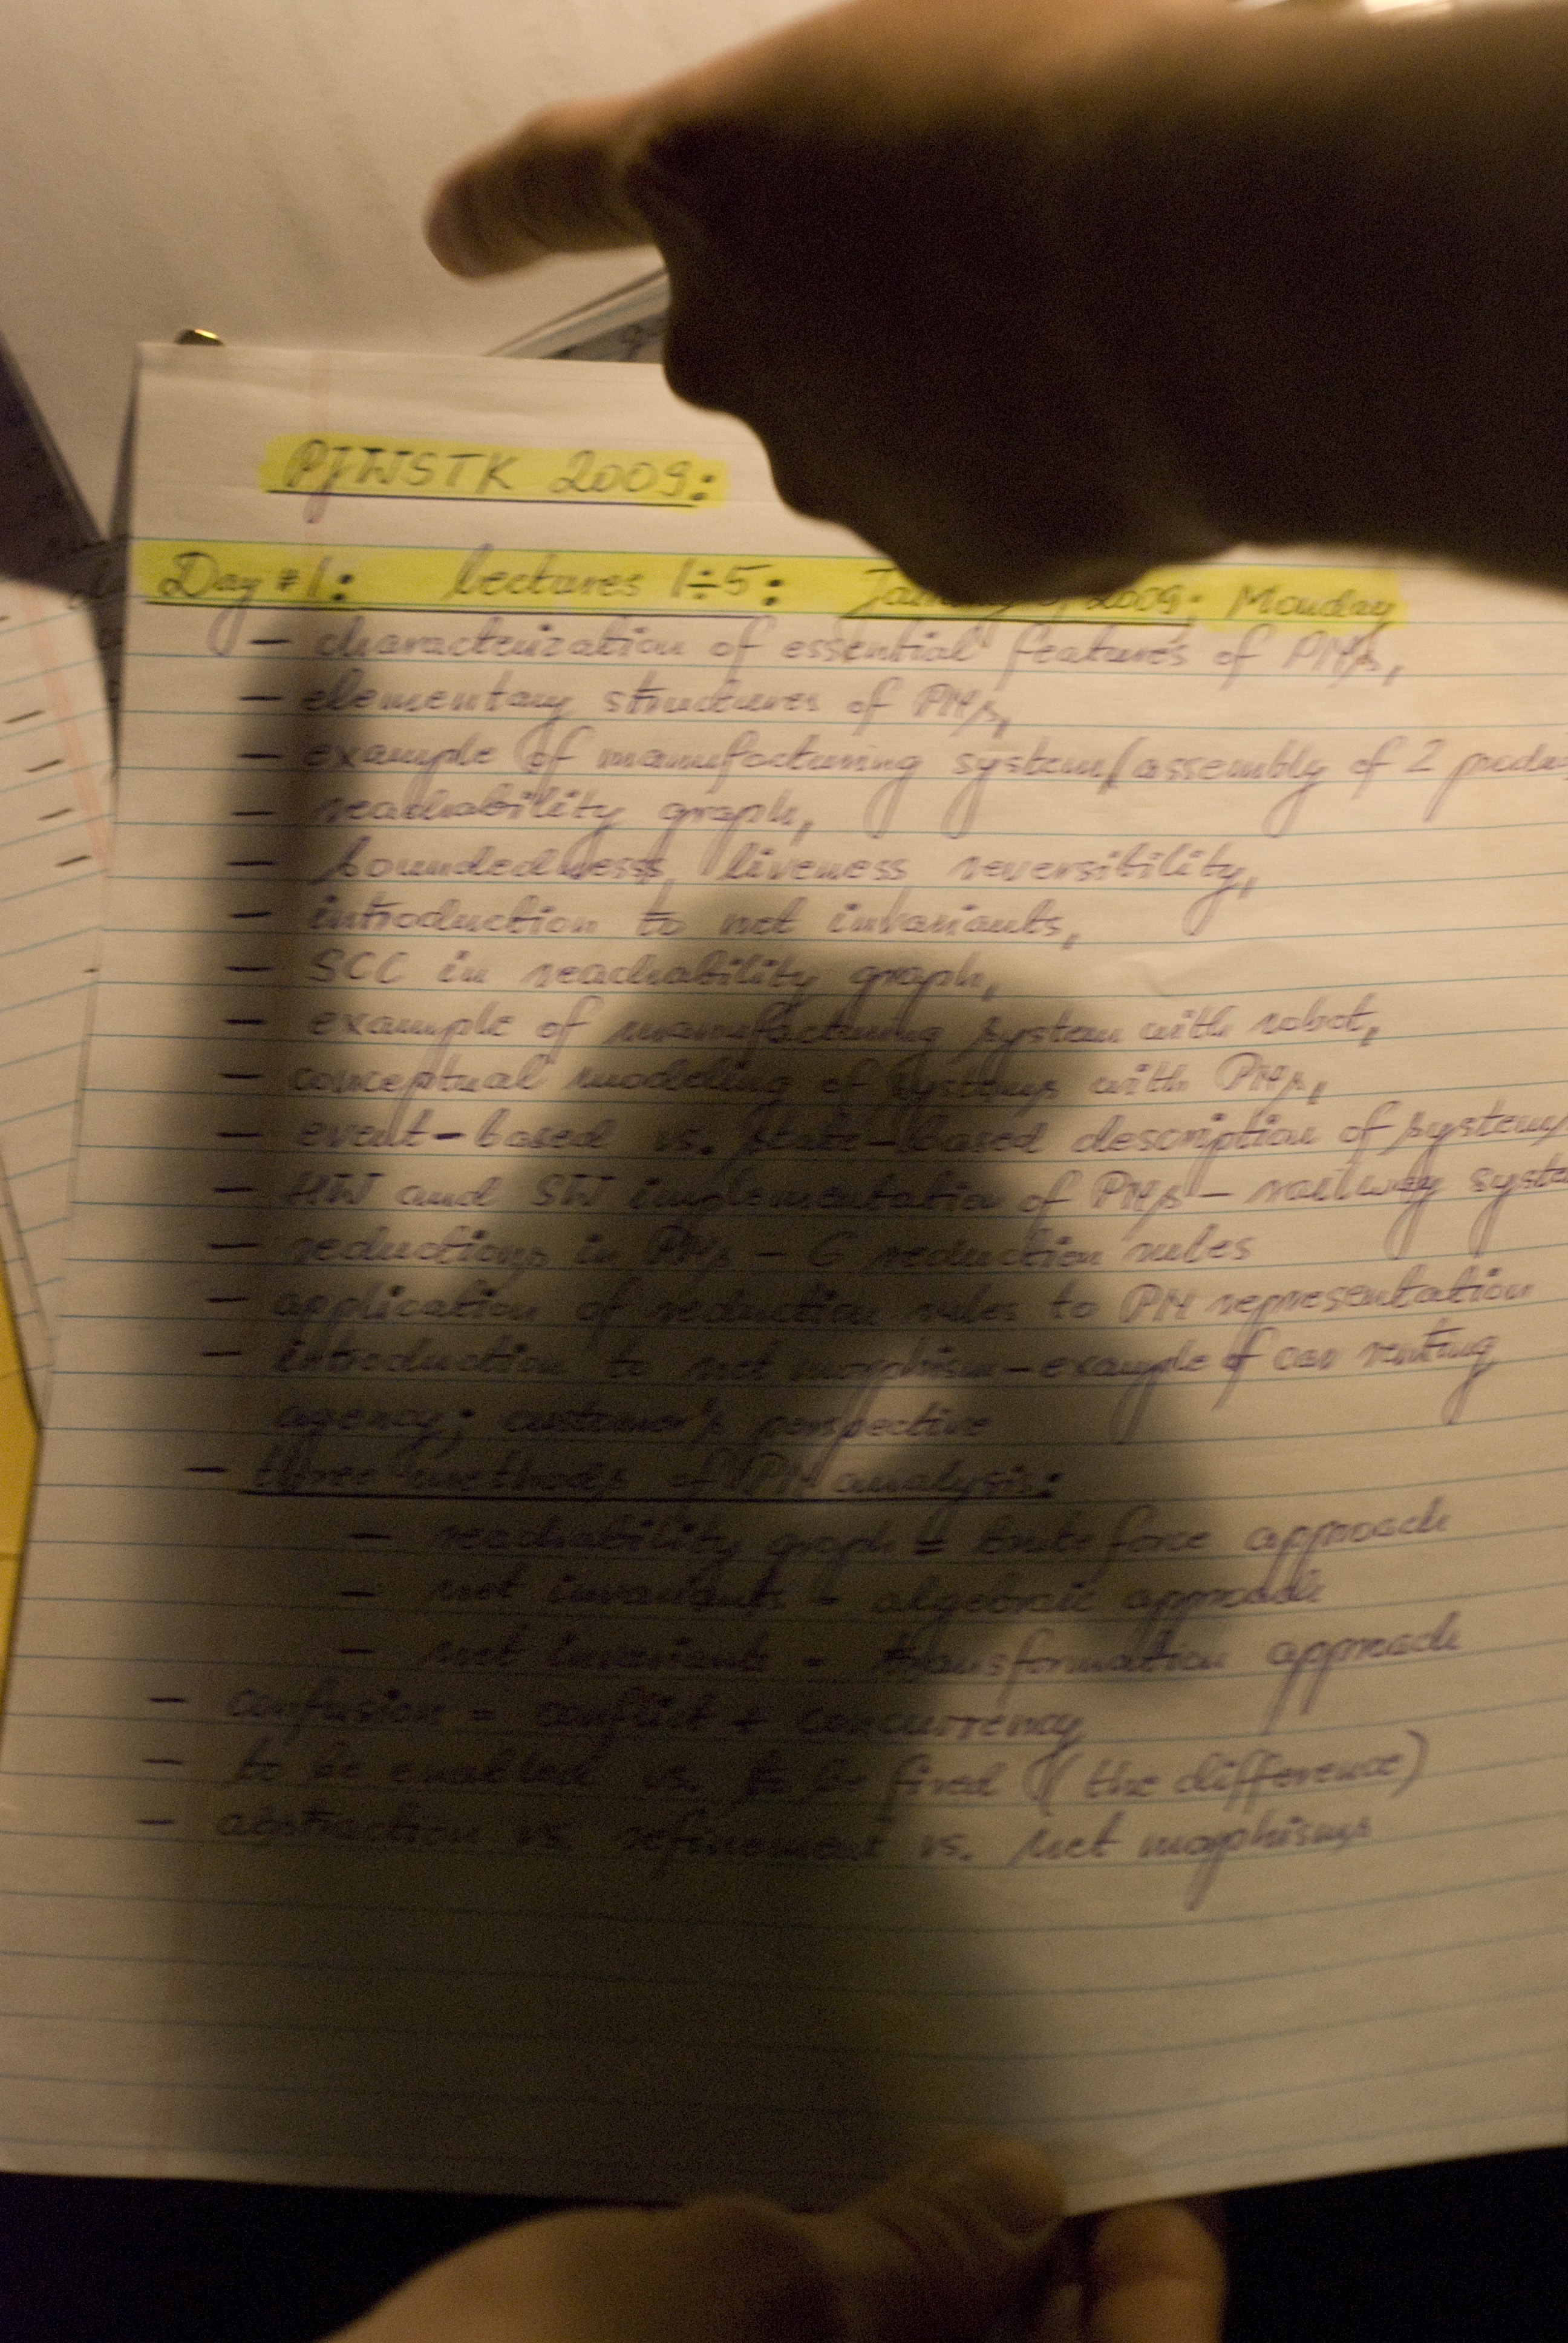 PJWSTK 2009:
Day #1: Lectures 1÷5: 2009: Monday
– characterization of essential features of PNs,
– elementary structures of PNs,
– example of manufacturing system/assembly of 2
– reachability graph,
– boundedness, liveness reversibility,
– introduction to net invariants,
– SCC in reachability graph,
– example of manufacturing system with robot,
– conceptual modeling of systems with PNs,
– event-based vs. state-based description of systems
– HW and SW implementation of PNs – railway
– reductions in PNs – 6 reduction rules
– application of reduction rules to PN representation
– introduction to net morphism – example of car renting
agency; customer's perspective
– three methods of PN analysis:
– reachability graph = brute force approach
– net invariants – algebraic approach
– net invariants – transformation approach
– confusion = conflict + concurrency
– to be enabled vs. to be fired (the difference)
– abstraction vs. refinement vs. net morphisms